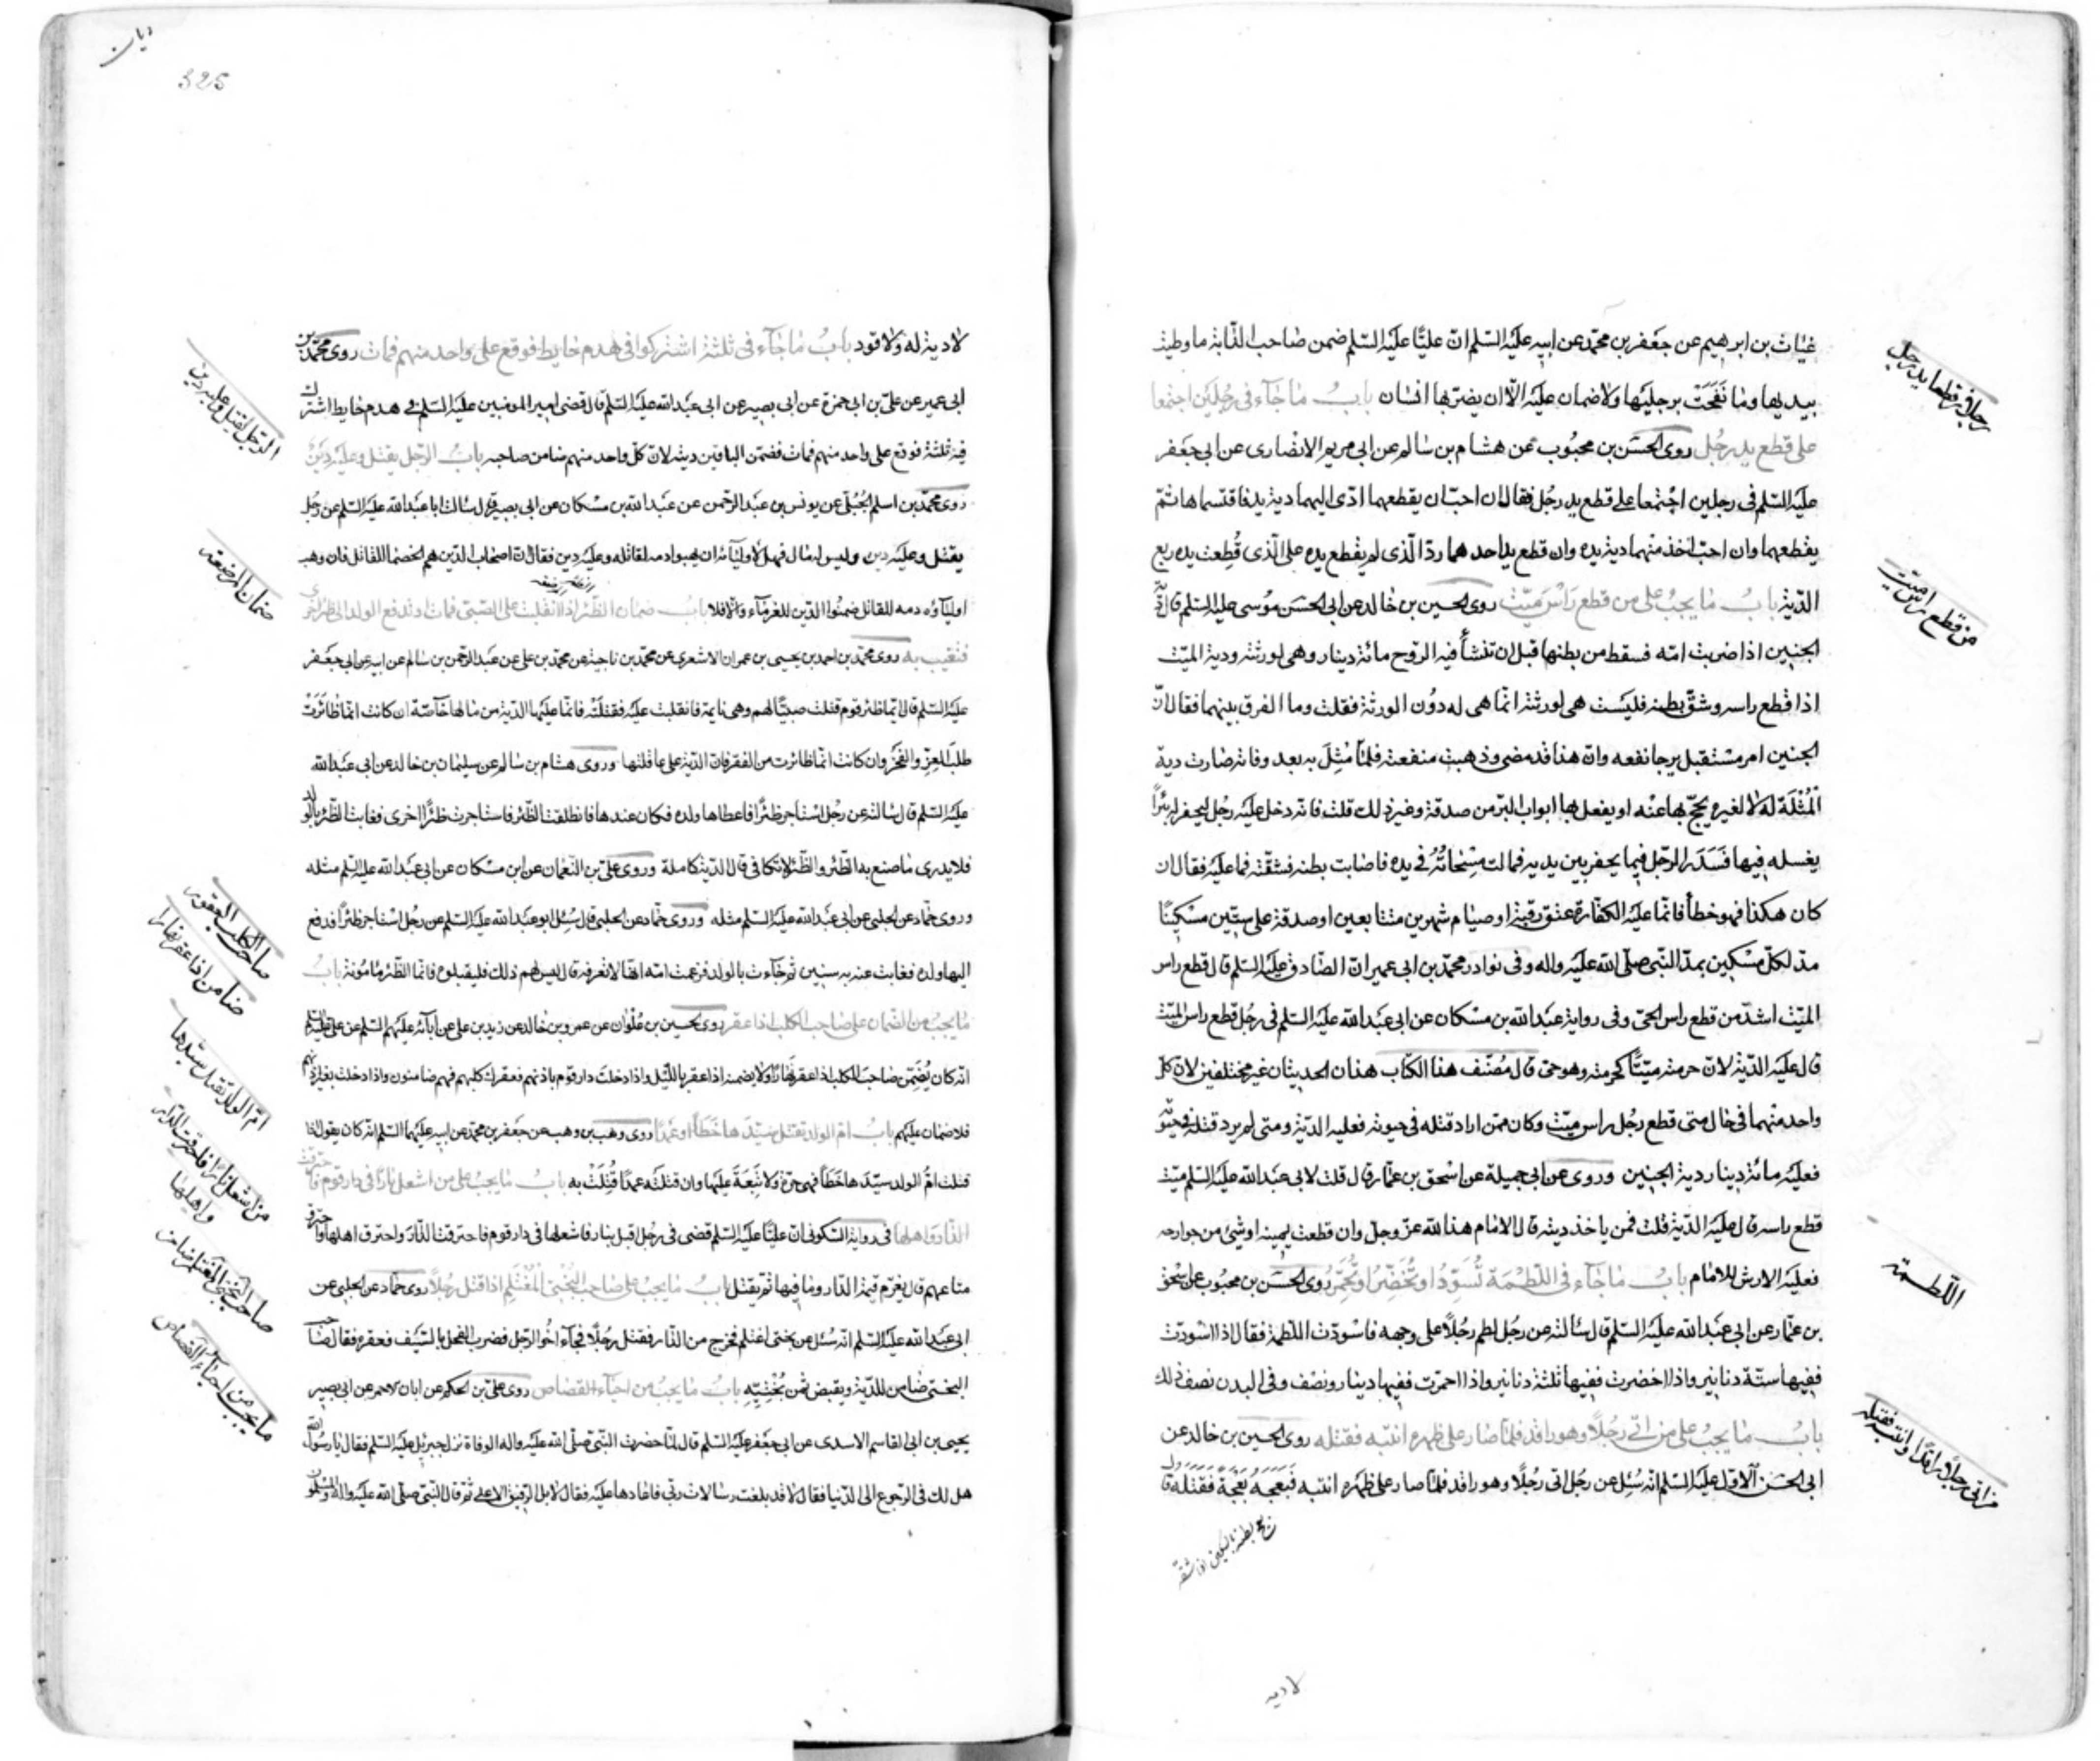 غياث بن ابرهيم عن جعفر بن محمد عن ابيه عليه السلم ان عليا عليه السلم ضمن صاحب الدابة ما وطيت
بيديها وما نفحت برجليها ولا ضمان عليه الا ان يضربها انسان باب ما جاء فى رجلين اجتمعا
على قطع يد رجل روى الحسن بن محبوب عن هشام بن سالم عن ابى مريم الانصارى عن ابى جعفر
عليه السلم فى رجلين اجتمعا على قطع يد رجل فقال ان احب ان يقطعهما ادى اليهما دية يد فاقتسماها ثم
يقطعهما وان احب اخذ منهما دية يده وان قطع يد احدهما رد الذى لم يقطع يده على الذى قطعت يده ربع
الدية باب ما يجب على من قطع راس ميت روى الحسين بن خالد عن ابى الحسن موسى عليه السلم قال دية
الجنين اذا ضربت امه فسقط من بطنها قبل ان تنشأ فيه الروح مائة دينار وهى لورثته ودية الميت
اذا قطع راسه وشق بطنه فليست هى لورثته انما هى له دون الورثة فقلت وما الفرق بينهما فقال ان
الجنين امر مستقبل يرجا نفعه وان هذا قد مضى وذهبت منفعته فلما مثل به بعد وفاته صارت دية
المثلة له لا لغيره يحج بها عنه او يفعل بها ابواب البر من صدقة وغير ذلك قلت فانه دخل عليه رجل ليحفر له بئرا
يغسله فيها فسدر الرجل فيما يحفر بين يديه فمالت مسحاته فى يده فاصابت بطنه فشقته فما عليه فقال ان
كان هكذا فهو خطأ فانما عليه الكفارة عتق رقبة او صيام شهرين متتابعين او صدقة على ستين مسكينا
مد لكل مسكين بمد النبى صلى الله عليه واله وفى نوادر محمد بن ابى عمير ان الصادق عليه السلم قال قطع راس
الميت اشد من قطع راس الحى وفى رواية عبد الله بن مسكان عن ابى عبد الله عليه السلم فى رجل قطع راس الميت
قال عليه الدية لان حرمته ميتا كحرمته وهو حى قال مصنف هذا الكتاب هذان الحديثان غير مختلفين لان كل
واحد منهما فى حال متى قطع رجل راس ميت وكان ممن اراد قتله فى حيوته فعليه الدية ومتى لم يرد قتله فى حيوته
فعليه مائة دينار دية الجنين وروى عن ابى جميلة عن اسحق بن عمار قال قلت لابى عبد الله عليه السلم ميت
قطع راسه قال عليه الدية قلت فمن ياخذ ديته قال الامام هذا لله عز وجل وان قطعت يمينه او شىء من جوارحه
فعليه الارش للامام باب ما جاء فى اللطمة تسود او تخضر او تحمر روى الحسن بن محبوب عن اسحق
بن عمار عن ابى عبد الله عليه السلم قال سئالته عن رجل لطم رجلا على وجهه فاسودت اللطمة فقال اذا اسودت
ففيها ستة دنانير واذا اخضرت ففيها ثلثة دنانير واذا احمرت ففيها دينار ونصف وفى البدن نصف ذلك
باب ما يجب على من اتى رجلا وهو راقد فلما صار على ظهره انتبه فقتله روى الحسين بن خالد عن
ابى الحسن الاول عليه السلم انه سئل عن رجل اتى رجلا وهو راقد فلما صار على ظهره انتبه فبعجه بعجة فقتله قال
بعج بطنه بالسكين اذا شقه
لا دية
رجل فى قطعا يد رجل
من قطع راس ميت
اللطمة
من اتى رجلا راقدا وانتبه فقتله
325
لا دية له ولا قود باب ما جاء فى ثلثة اشتركوا فى هدم حايط فوقع على واحد منهم فمات روى محمد بن
ابى عمير عن على بن ابى حمزة عن ابى بصير عن ابى عبد الله عليه السلم قال قضى امير المؤمنين عليه السلم فى هدم حايط اشترك
فيه ثلثة فوقع على واحد منهم فمات فضمن الباقين ديته لان كل واحد منهم ضامن صاحبه باب الرجل يقتل وعليه دين
روى محمد بن اسلم الجبلى عن يونس بن عبد الرحمن عن عبد الله بن مسكان عن ابى بصير قال سالت ابا عبد الله عليه السلم عن رجل
يقتل وعليه دين وليس له مال فهل لاوليائه ان يهبوا دمه لقاتله وعليه دين فقال ان اصحاب الدين هم الخصما للقاتل فان وهب
اولياؤه دمه للقاتل ضمنوا الدين للغرماء والا فلا باب ضمان الظئر اذا انقلبت على الصبى فمات او تدفع الولد الى ظئر اخرى
فتغيب به روى محمد بن احمد بن يحيى بن عمران الاشعرى عن محمد بن ناجية عن محمد بن على عن عبد الرحمن بن سالم عن ابيه عن ابى جعفر
عليه السلم قال ايما ظئر قوم قتلت صبيا لهم وهى نايمة فانقلبت عليه فقتلته فانما عليها الدية من مالها خاصة ان كانت انما ظائرت
طلب العز والفخر وان كانت انما ظائرت من الفقر فان الدية على عاقلتها وروى هشام بن سالم عن سليمان بن خالد عن ابى عبد الله
عليه السلم قال سئالته عن رجل استاجر ظئرا فاعطاها ولده فكان عندها فانطلقت الظئر فاستاجرت ظئرا اخرى فغابت الظئر بالولد
فلا يدرى ما صنع به الظئر والظئر لا تكافى قال الدية كاملة وروى على بن النعمان عن ابن مسكان عن ابى عبد الله عليه السلم مثله
وروى حماد عن الحلبى عن ابى عبد الله عليه السلم مثله وروى حماد عن الحلبى قال سئل ابو عبد الله عليه السلم عن رجل استاجر ظئرا فدفع
اليها ولده فغابت عنه به سنين ثم جاءت بالولد فزعمت امه انها لا تعرفه قال ليس لهم ذلك فليقبلوه فانما الظئر مامونة باب
ما يجب من الضمان على صاحب الكلب اذا عقر روى الحسين بن علوان عن عمرو بن خالد عن زيد بن على عن آبائه عليهم السلم عن على عليه السلم
انه كان يضمن صاحب الكلب اذا عقر نهارا ولا يضمنه اذا عقر بالليل واذا دخلت دار قوم باذنهم فعقرك كلبهم فهم ضامنون واذا دخلت بغير اذنهم
فلا ضمان عليهم باب ام الولد تقتل سيدها خطأ او عمدا روى وهب بن وهب عن جعفر بن محمد عن ابيه عليهما السلم انه كان يقول اذا
قتلت ام الولد سيدها خطأ فهى حرة ولا تبعة عليها وان قتلته عمدا قتلت به باب ما يجب على من اشعل نارا فى دار قوم فاحترقت
الدار واهلها فى رواية السكونى ان عليا عليه السلم قضى فى رجل اقبل بنار فاشعلها فى دار قوم فاحترقت الدار واحترق اهلها واحترق
متاعهم قال يغرم قيمة الدار وما فيها ثم يقتل باب ما يجب على صاحب البختى المغتلم اذا قتل رجلا روى حماد عن الحلبى عن
ابى عبد الله عليه السلم انه سئل عن بختى اغتلم فخرج من الدار فقتل رجلا فجاء اخو الرجل فضرب الفحل بالسيف فعقره فقال صاحب
البختى ضامن للدية ويقبض ثمن بختيه باب ما يجب من احياء القصاص روى على بن الحكم عن ابان الاحمر عن ابى بصير
يحيى بن ابى القاسم الاسدى عن ابى جعفر عليه السلم قال لما حضرت النبى صلى الله عليه واله الوفاة نزل جبرئيل عليه السلم فقال يا رسول الله
هل لك فى الرجوع الى الدنيا فقال لا قد بلغت رسالات ربى فاعادها عليه فقال لا بل الرفيق الاعلى ثم قال النبى صلى الله عليه واله والمسلمون
الرجل يقتل وعليه دين
ضمان المرضعة
صاحب الكلب العقور
ضامن اذا عقر نهارا
ام الولد تقتل سيدها
من اشعل نارا فاحترقت الدار
واهلها
صاحب البختى المغتلم ضامن
ما يجب من احياء القصاص